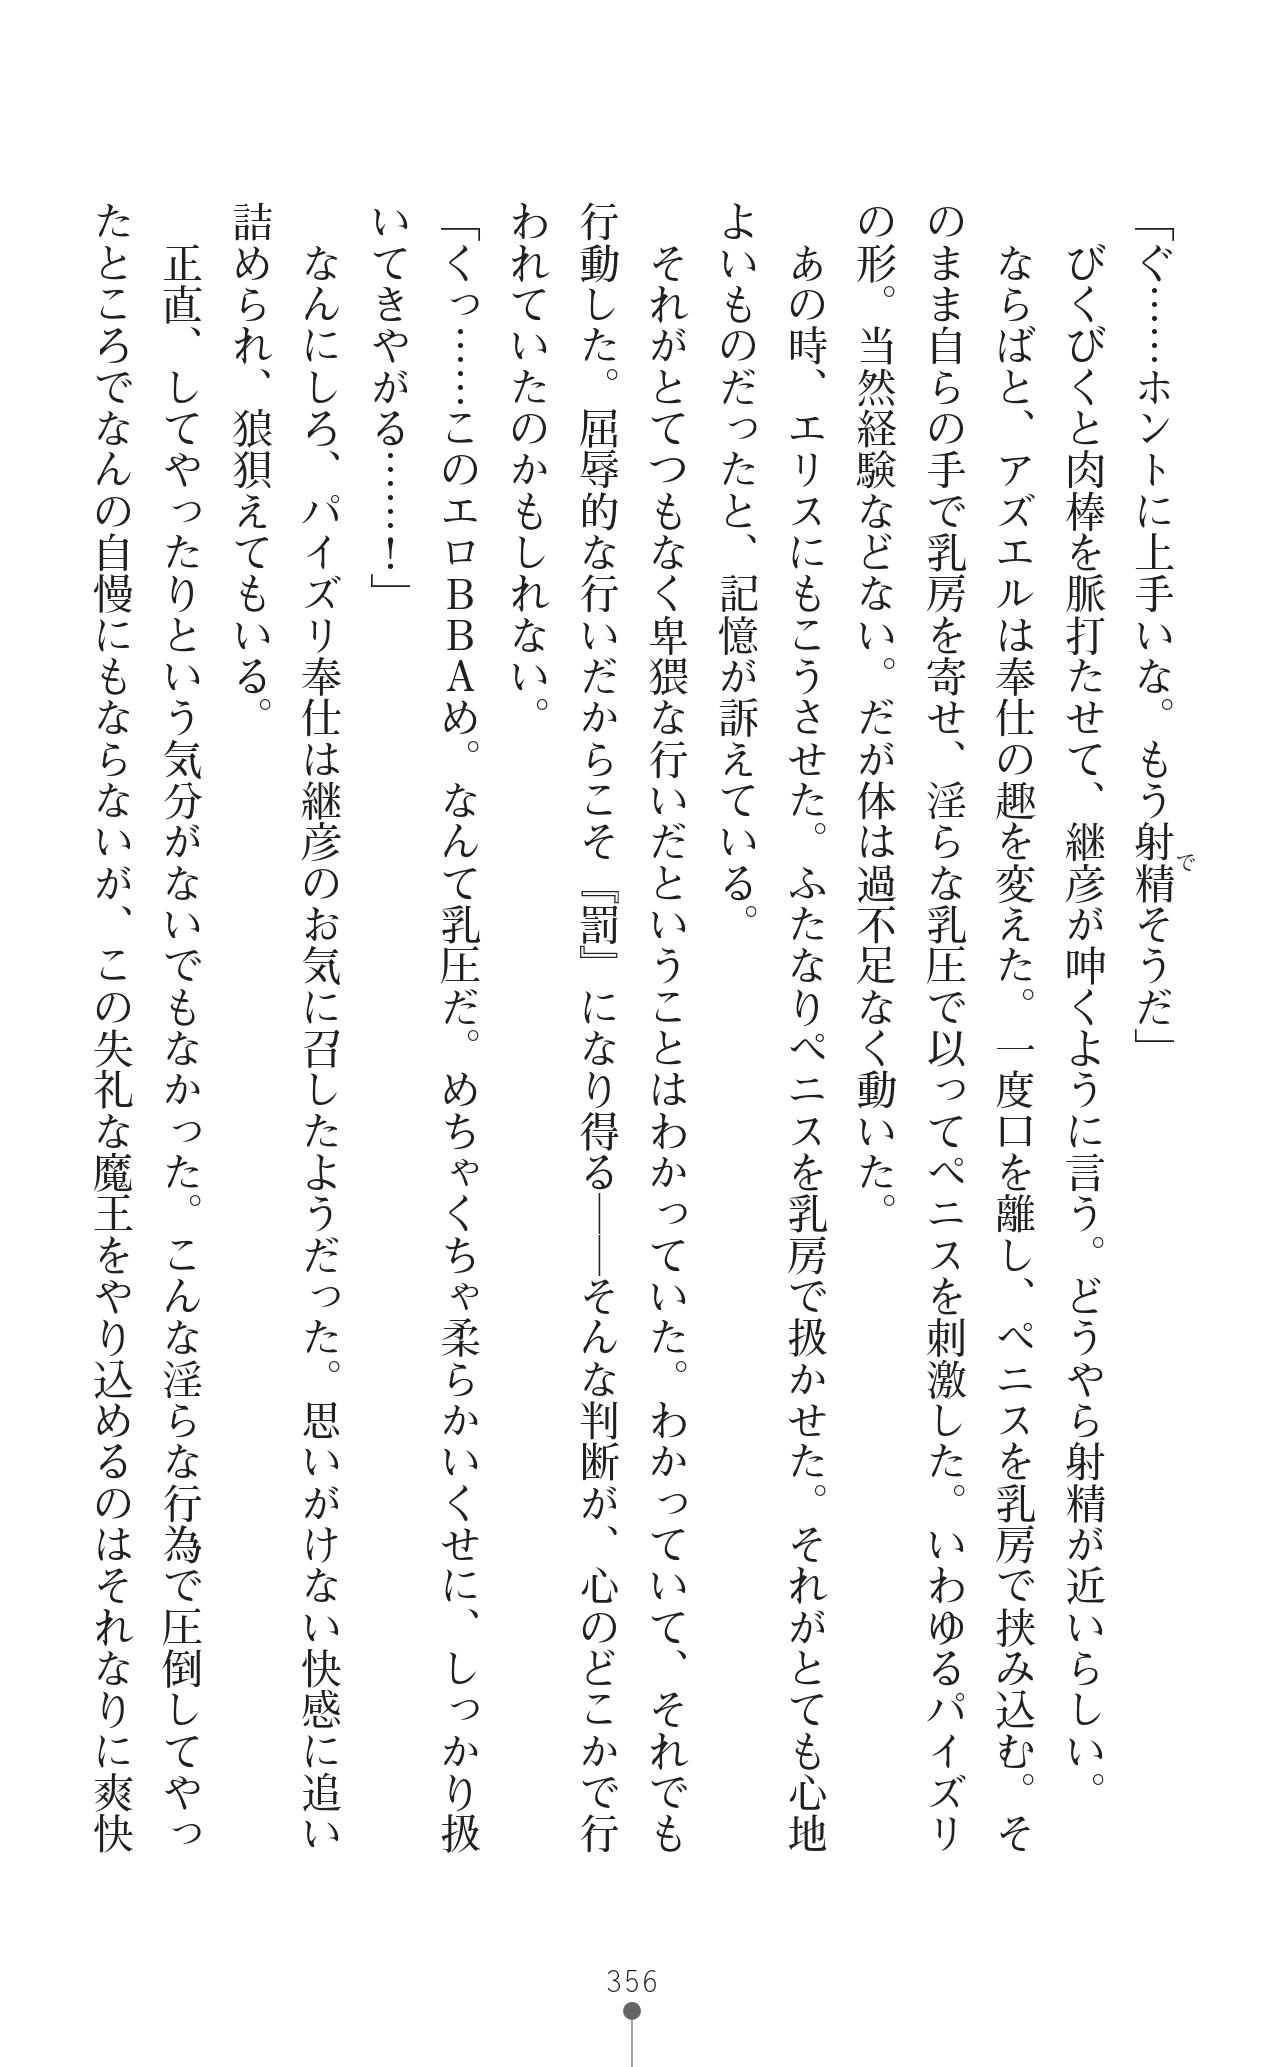 「ぐ……ホントに上手いな。もう射精そうだ」
で
びくびくと肉棒を脈打たせて、継彦が呻くように言う。どうやら射精が近いらしい。
ならばと、アズエルは奉仕の趣を変えた。一度口を離し、ペニスを乳房で挟み込む。そ
のまま自らの手で乳房を寄せ、淫らな乳圧で以ってペニスを刺激した。いわゆるパイズリ
の形。当然経験などない。だが体は過不足なく動いた。
あの時、エリスにもこうさせた。ふたなりペニスを乳房で扱かせた。それがとても心地
よいものだったと、記憶が訴えている。
それがとてつもなく卑猥な行いだということはわかっていた。わかっていて、それでも
行動した。屈辱的な行いだからこそ『罰』になり得る――そんな判断が、心のどこかで行
われていたのかもしれない。
「くっ……このエロＢＢＡめ。なんて乳圧だ。めちゃくちゃ柔らかいくせに、しっかり扱
いてきやがる……！」
なんにしろ、パイズリ奉仕は継彦のお気に召したようだった。思いがけない快感に追い
詰められ、狼狽えてもいる。
正直、してやったりという気分がないでもなかった。こんな淫らな行為で圧倒してやっ
たところでなんの自慢にもならないが、この失礼な魔王をやり込めるのはそれなりに爽快
356